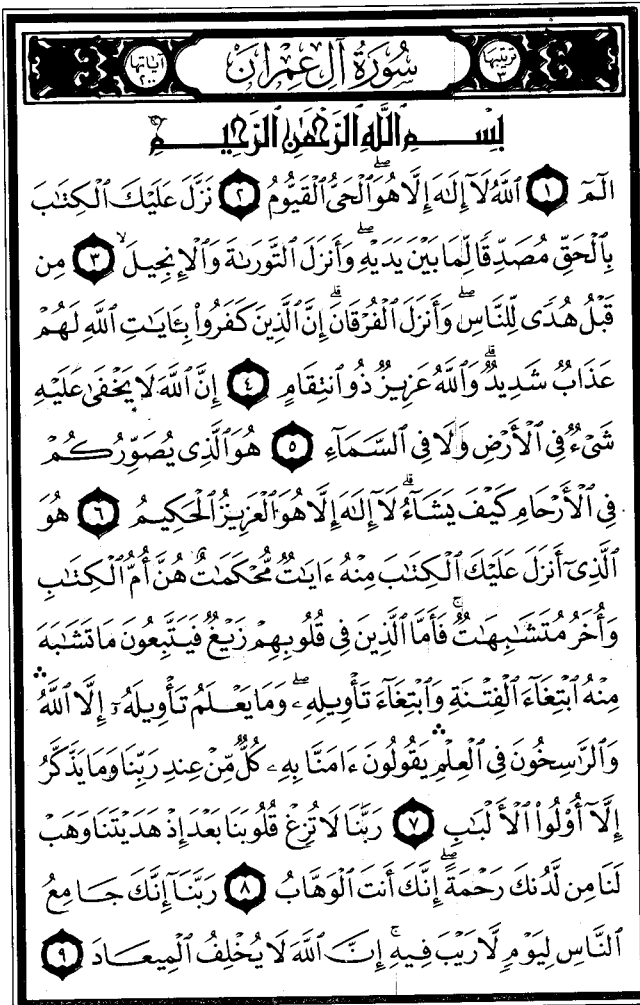 ترتيبها ٣ سُورَةُ آلِ عِمْرَانَ آياتها ٢٠٠
بِسْمِ ٱللَّهِ ٱلرَّحْمَٰنِ ٱلرَّحِيمِ
الٓمٓ ١ ٱللَّهُ لَآ إِلَٰهَ إِلَّا هُوَ ٱلْحَىُّ ٱلْقَيُّومُ ٢ نَزَّلَ عَلَيْكَ ٱلْكِتَٰبَ
بِٱلْحَقِّ مُصَدِّقًا لِّمَا بَيْنَ يَدَيْهِ ۖ وَأَنزَلَ ٱلتَّوْرَىٰةَ وَٱلْإِنجِيلَ ۙ ٣ مِن
قَبْلُ هُدًى لِّلنَّاسِ ۖ وَأَنزَلَ ٱلْفُرْقَانَ ۗ إِنَّ ٱلَّذِينَ كَفَرُوا۟ بِـَٔايَٰتِ ٱللَّهِ لَهُمْ
عَذَابٌ شَدِيدٌ ۗ وَٱللَّهُ عَزِيزٌ ذُو ٱنتِقَامٍ ٤ إِنَّ ٱللَّهَ لَا يَخْفَىٰ عَلَيْهِ
شَىْءٌ فِى ٱلْأَرْضِ وَلَا فِى ٱلسَّمَآءِ ٥ هُوَ ٱلَّذِى يُصَوِّرُكُمْ
فِى ٱلْأَرْحَامِ كَيْفَ يَشَآءُ ۗ لَآ إِلَٰهَ إِلَّا هُوَ ٱلْعَزِيزُ ٱلْحَكِيمُ ٦ هُوَ
ٱلَّذِىٓ أَنزَلَ عَلَيْكَ ٱلْكِتَٰبَ مِنْهُ ءَايَٰتٌ مُّحْكَمَٰتٌ هُنَّ أُمُّ ٱلْكِتَٰبِ
وَأُخَرُ مُتَشَٰبِهَٰتٌ ۖ فَأَمَّا ٱلَّذِينَ فِى قُلُوبِهِمْ زَيْغٌ فَيَتَّبِعُونَ مَا تَشَٰبَهَ
مِنْهُ ٱبْتِغَآءَ ٱلْفِتْنَةِ وَٱبْتِغَآءَ تَأْوِيلِهِۦ ۖ وَمَا يَعْلَمُ تَأْوِيلَهُۥٓ إِلَّا ٱللَّهُ ۛ
وَٱلرَّٰسِخُونَ فِى ٱلْعِلْمِ ۛ يَقُولُونَ ءَامَنَّا بِهِۦ كُلٌّ مِّنْ عِندِ رَبِّنَا وَمَا يَذَّكَّرُ
إِلَّآ أُو۟لُوا۟ ٱلْأَلْبَٰبِ ٧ رَبَّنَا لَا تُزِغْ قُلُوبَنَا بَعْدَ إِذْ هَدَيْتَنَا وَهَبْ
لَنَا مِن لَّدُنكَ رَحْمَةً ۖ إِنَّكَ أَنتَ ٱلْوَهَّابُ ٨ رَبَّنَآ إِنَّكَ جَامِعُ
ٱلنَّاسِ لِيَوْمٍ لَّا رَيْبَ فِيهِ ۚ إِنَّ ٱللَّهَ لَا يُخْلِفُ ٱلْمِيعَادَ ٩